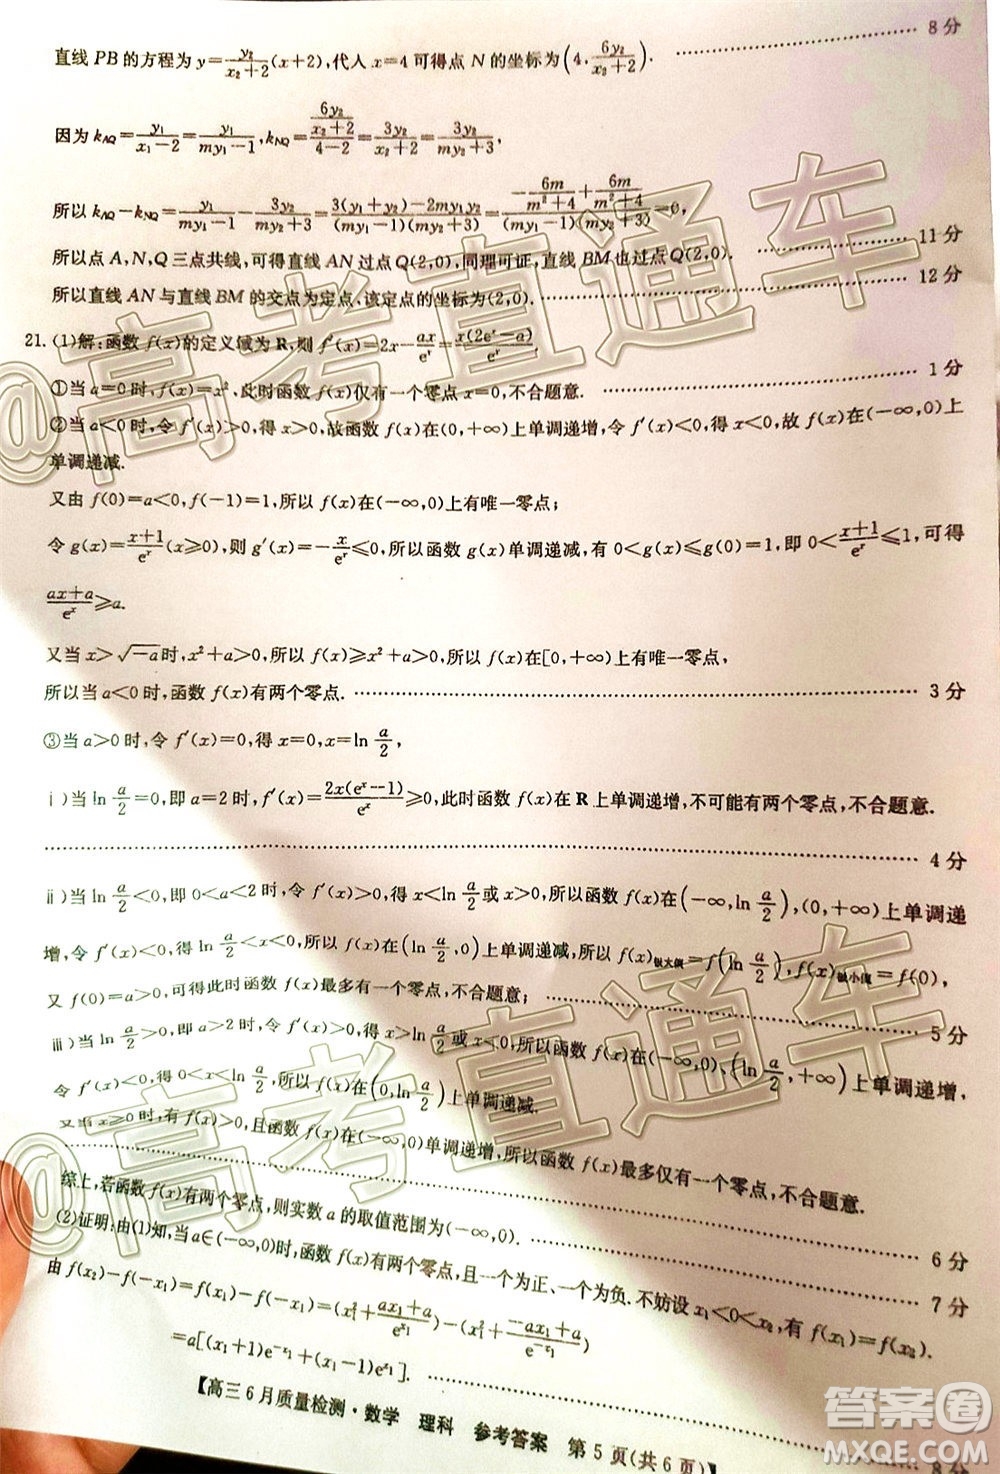 ……………………………… 8 分
直线 PB 的方程为 y=\frac{y₂}{x₂+2}(x+2),代人 x=4 可得点 N 的坐标为(4,\frac{6y₂}{x₂+2}).
因为 k_{AQ}=\frac{y₁}{x₁-2}=\frac{y₁}{my₁-1},k_{NQ}=\frac{\frac{6y₂}{x₂+2}}{4-2}=\frac{3y₂}{x₂+2}=\frac{3y₂}{my₂+3},
所以 k_{AQ}-k_{NQ}=\frac{y₁}{my₁-1}-\frac{3y₂}{my₂+3}=\frac{3(y₁+y₂)-2my₁y₂}{(my₁-1)(my₂+3)}=\frac{-\frac{6m}{m²+4}+\frac{6m}{m²+4}}{(my₁-1)(my₂+3)}=0,
所以点 A,N,Q 三点共线,可得直线 AN 过点 Q(2,0),同理可证,直线 BM 也过点 Q(2,0). ………… 11 分
所以直线 AN 与直线 BM 的交点为定点,该定点的坐标为(2,0). ……………………………… 12 分
21. (1)解:函数 f(x)的定义域为 R,则 f′(x)=2x-\frac{ax}{eˣ}=\frac{x(2eˣ-a)}{eˣ}.
①当 a=0 时,f(x)=x²,此时函数 f(x)仅有一个零点 x=0,不合题意. ……………………………… 1 分
②当 a<0 时,令 f′(x)>0,得 x>0,故函数 f(x)在(0,+∞)上单调递增,令 f′(x)<0,得 x<0,故 f(x)在(-∞,0)上
单调递减.
又由 f(0)=a<0,f(-1)=1,所以 f(x)在(-∞,0)上有唯一零点;
令 g(x)=\frac{x+1}{eˣ}(x≥0),则 g′(x)=-\frac{x}{eˣ}≤0,所以函数 g(x)单调递减,有 0<g(x)≤g(0)=1,即 0<\frac{x+1}{eˣ}≤1,可得
\frac{ax+a}{eˣ}≥a.
又当 x>\sqrt{-a}时,x²+a>0,所以 f(x)≥x²+a>0,所以 f(x)在[0,+∞)上有唯一零点,
所以当 a<0 时,函数 f(x)有两个零点. ……………………………… 3 分
③当 a>0 时,令 f′(x)=0,得 x=0,x=ln\frac{a}{2},
ⅰ)当 ln\frac{a}{2}=0,即 a=2 时,f′(x)=\frac{2x(eˣ-1)}{eˣ}≥0,此时函数 f(x)在 R 上单调递增,不可能有两个零点,不合题意.
……………………………… 4 分
ⅱ)当 ln\frac{a}{2}<0,即 0<a<2 时,令 f′(x)>0,得 x<ln\frac{a}{2}或 x>0,所以函数 f(x)在(-∞,ln\frac{a}{2}),(0,+∞)上单调递
增,令 f′(x)<0,得 ln\frac{a}{2}<x<0,所以 f(x)在(ln\frac{a}{2},0)上单调递减,所以 f(x)极大值=f(ln\frac{a}{2}),f(x)极小值=f(0),
又 f(0)=a>0,可得此时函数 f(x)最多有一个零点,不合题意; ……………………………… 5 分
ⅲ)当 ln\frac{a}{2}>0,即 a>2 时,令 f′(x)>0,得 x>ln\frac{a}{2}或 x<0,所以函数 f(x)在(-∞,0),(ln\frac{a}{2},+∞)上单调递增,
令 f′(x)<0,得 0<x<ln\frac{a}{2},所以 f(x)在(0,ln\frac{a}{2})上单调递减.
又当 x≥0 时,有 f(x)>0,且函数 f(x)在(-∞,0)单调递增,所以函数 f(x)最多仅有一个零点,不合题意.
……………………………… 6 分
综上,若函数 f(x)有两个零点,则实数 a 的取值范围为(-∞,0). ……………………………… 7 分
(2)证明:由(1)知,当 a∈(-∞,0)时,函数 f(x)有两个零点,且一个为正、一个为负.不妨设 x₁<0<x₂,有 f(x₁)=f(x₂).
由 f(x₂)-f(-x₁)=f(x₁)-f(-x₁)=(x₁²+\frac{ax₁+a}{e^{x₁}})-(x₁²+\frac{-ax₁+a}{e^{-x₁}})
=a[(x₁+1)e^{-x₁}+(x₁-1)e^{x₁}]. ……………………………… 8 分
【高三 6 月质量检测·数学 理科 参考答案 第 5 页(共 6 页)】
@高考直通车
@高考直通车
答案圈
MXQE.COM